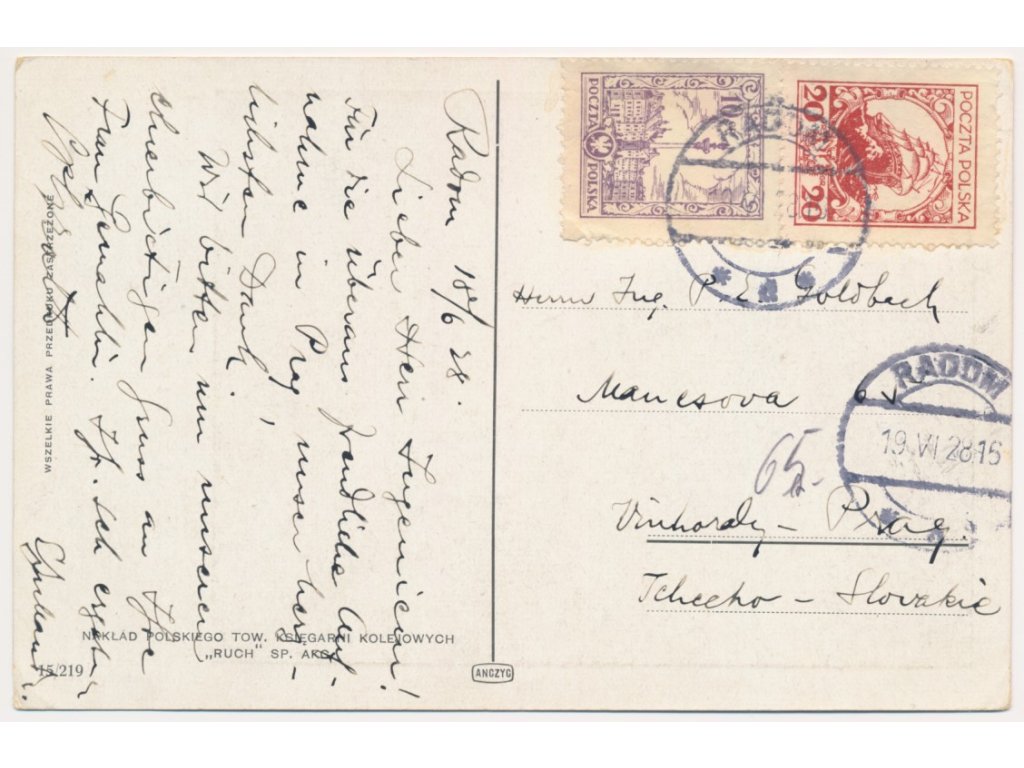 Radom 18/6 28.
Lieber Herr Ingenieur!
Für die überaus freundliche Auf-
nahme in Prag unsern herz-
lichsten Dank!
Wir bitten um unseren
ehrerbietigen Gruss an Ihre
Frau Gemahlin. Ihr sehr ergeb.
WSZELKIE PRAWA PRZEDRUKU ZASTRZEŻONE
NAKŁAD POLSKIEGO TOW. KSIĘGARNI KOLEJOWYCH
„RUCH" SP. AKC.
15/219
ANCZYC
10
POCZTA POLSKA
20 20
POCZTA POLSKA
RADOM
Herrn Ing. P. E. Goldbach
Manesova
65.
Vinhorady – Prag.
Tchecho – Slovakie
RADOM
19.VI 28.15